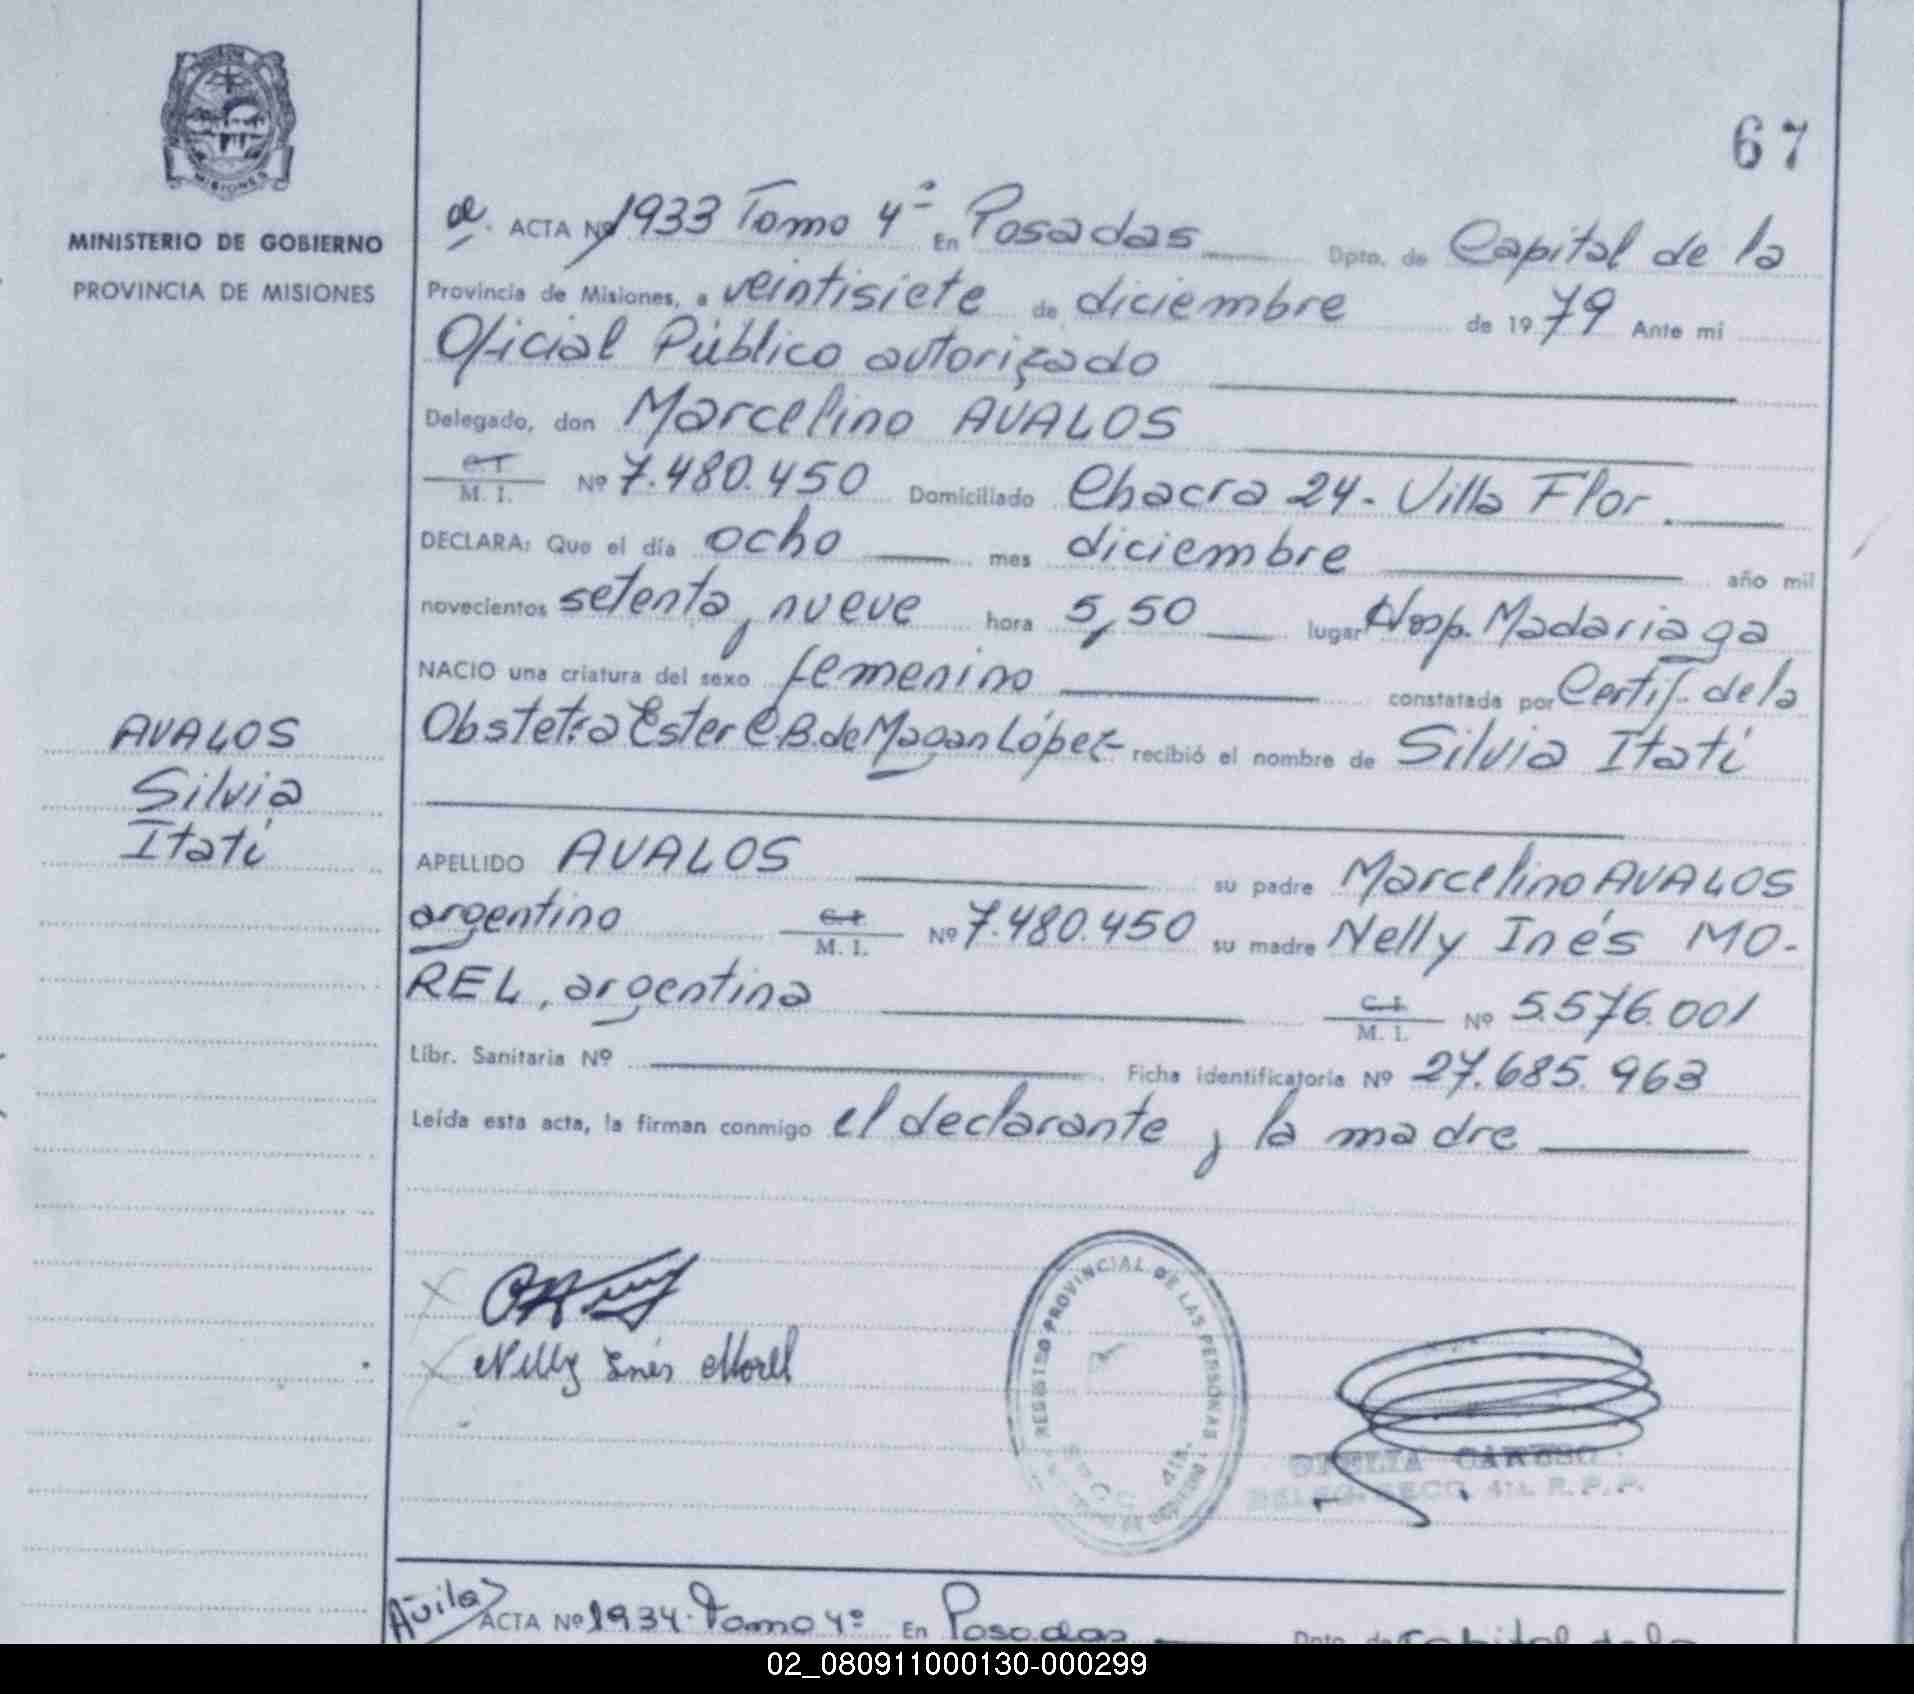 67
MISIONES
MINISTERIO DE GOBIERNO
PROVINCIA DE MISIONES
AVALOS
Silvia
Itatí
ACTA Nº 1933 Tomo 4º En Posadas Dpto. de Capital de la
Provincia de Misiones, a veintisiete de diciembre de 1979 Ante mí
Oficial Público autorizado
Delegado, don Marcelino AVALOS
C.I. M. I. Nº 7.480.450 Domiciliado Chacra 24 - Villa Flor.
DECLARA: Que el día ocho mes diciembre año mil
novecientos setenta y nueve hora 5,50 lugar Hosp. Madariaga
NACIO una criatura del sexo femenino constatada por Certif. de la
Obstetra Ester C B. de Magan López recibió el nombre de Silvia Itatí
APELLIDO AVALOS su padre Marcelino AVALOS
argentino C.I. M. I. Nº 7.480.450 su madre Nelly Inés MO-
REL, argentina C.I. M. I. Nº 5.576.001
Libr. Sanitaria Nº Ficha identificatoria Nº 27.685.963
Leída esta acta, la firman conmigo el declarante y la madre
Nelly Inés Morel
REGISTRO PROVINCIAL DE LAS PERSONAS
OFELIA CARUSO
DELEG. SECC. 4ta. R.P.P.
Avila
ACTA Nº 1934. Tomo 4º En Posadas Dpto. de Capital de la
02_080911000130-000299